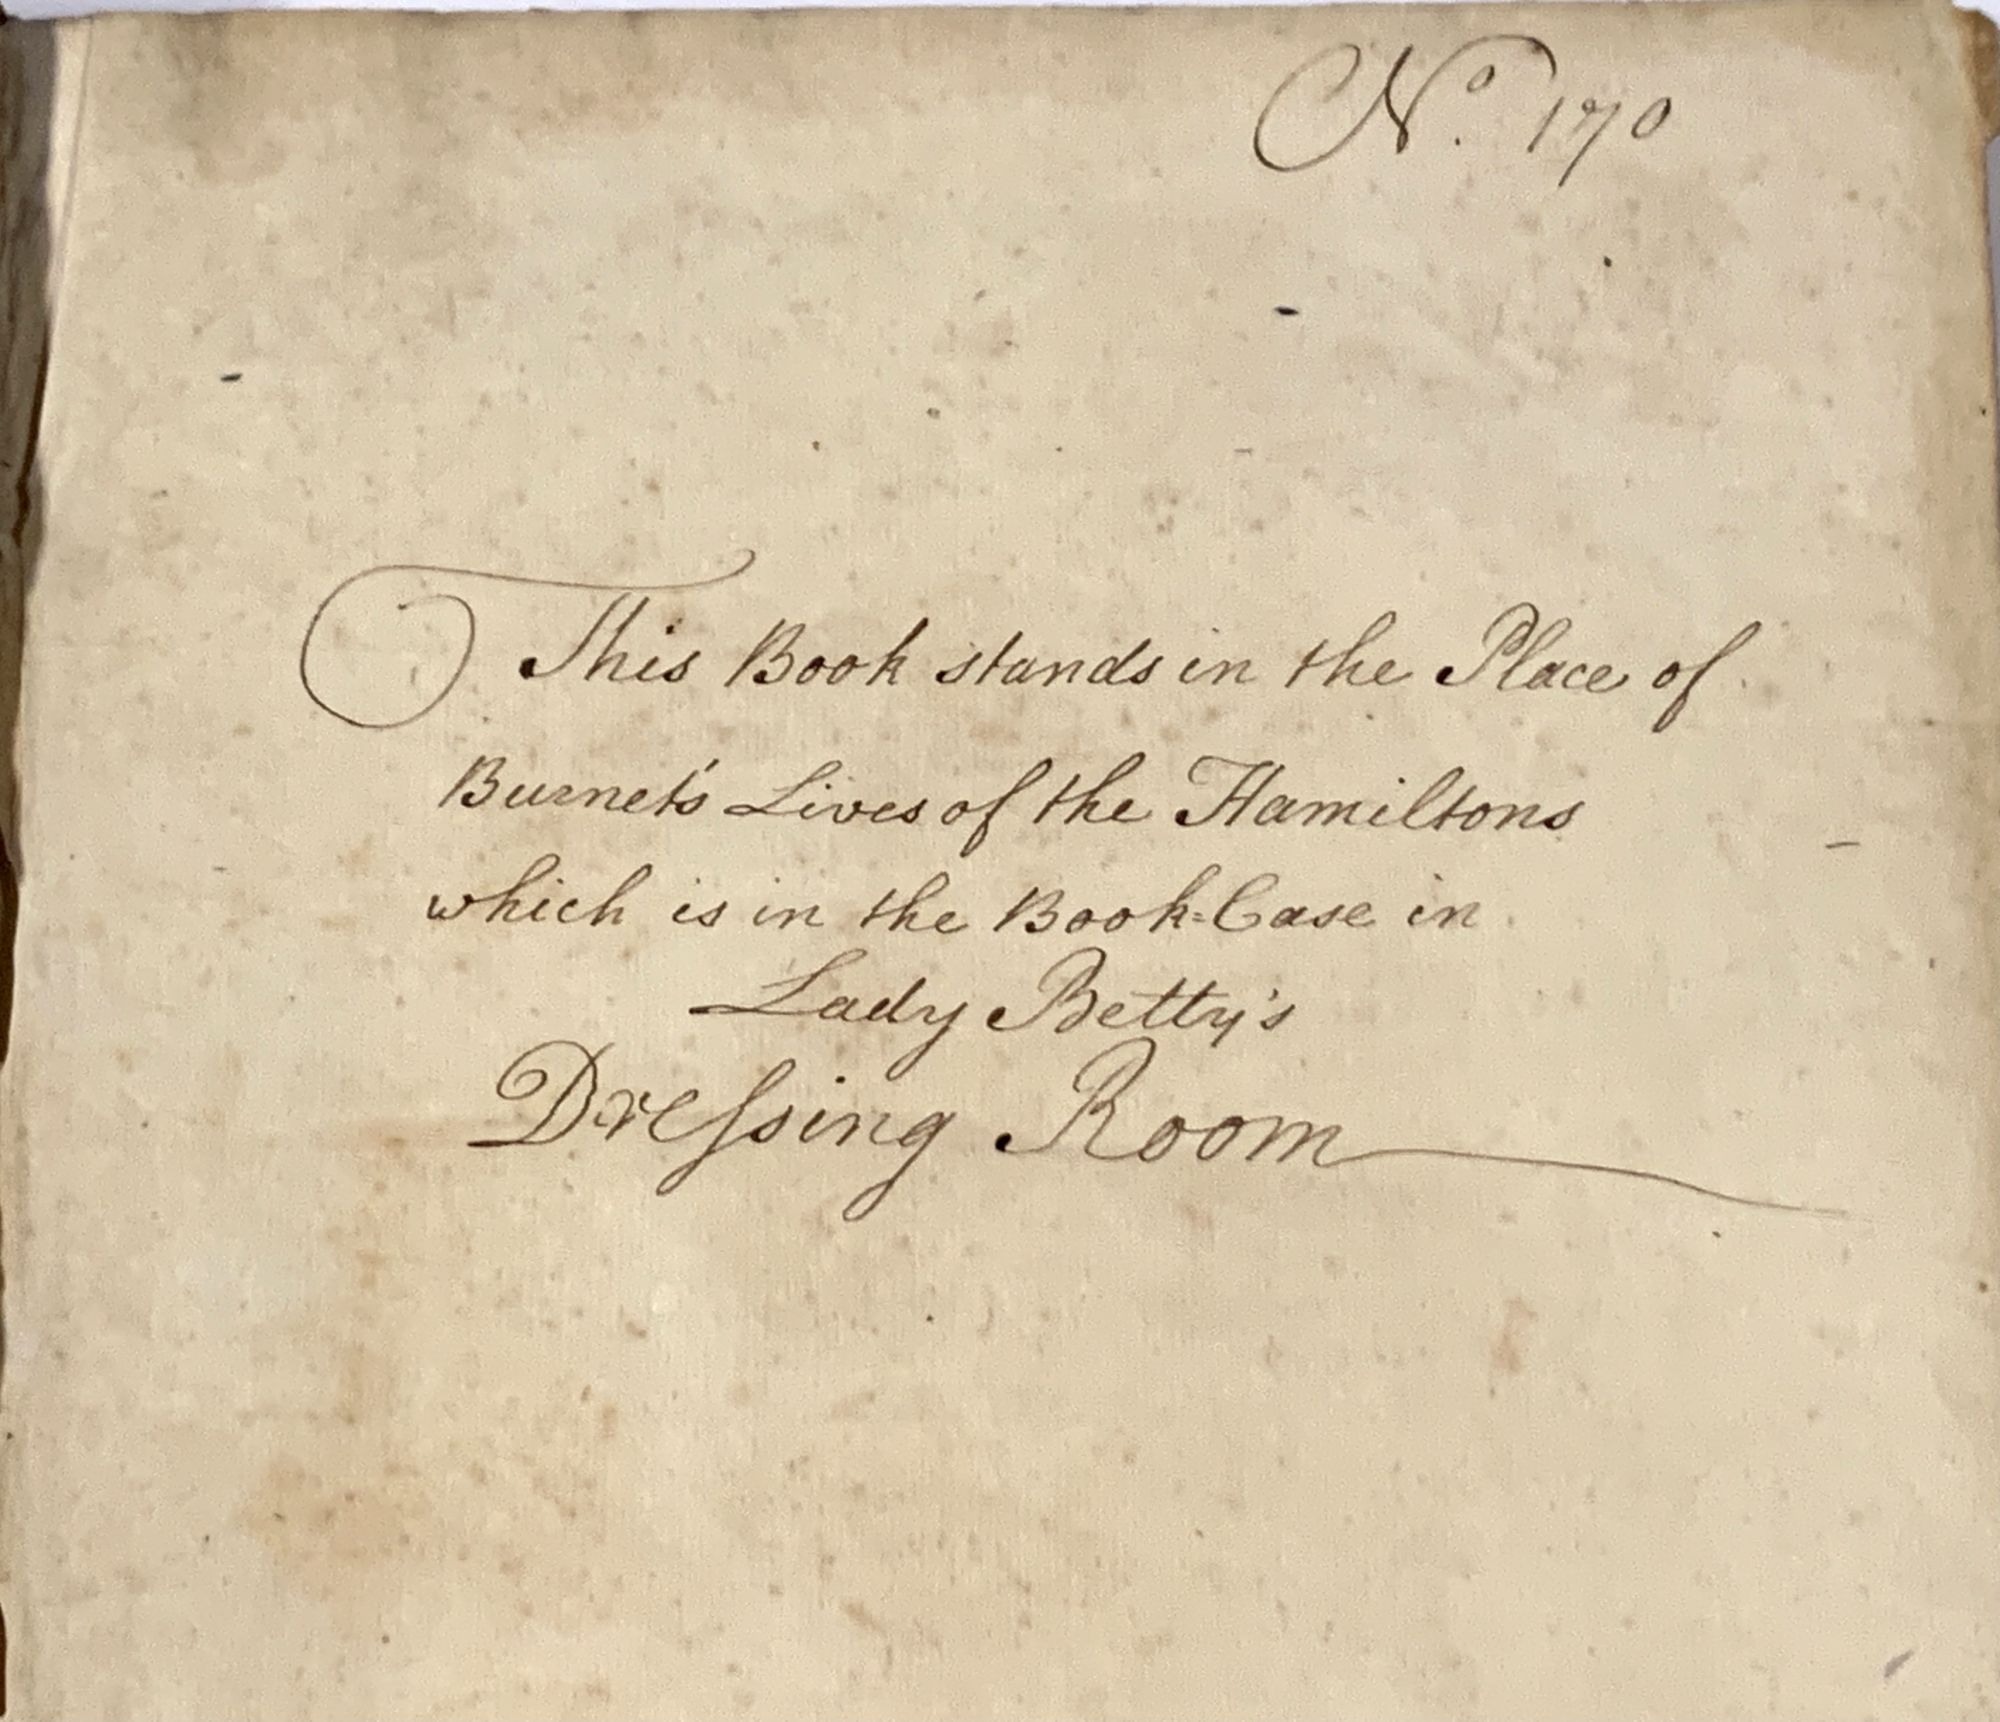 No. 170
This Book stands in the Place of
Burnet's Lives of the Hamiltons
which is in the Book=Case in
Lady Betty's
Dreſsing Room